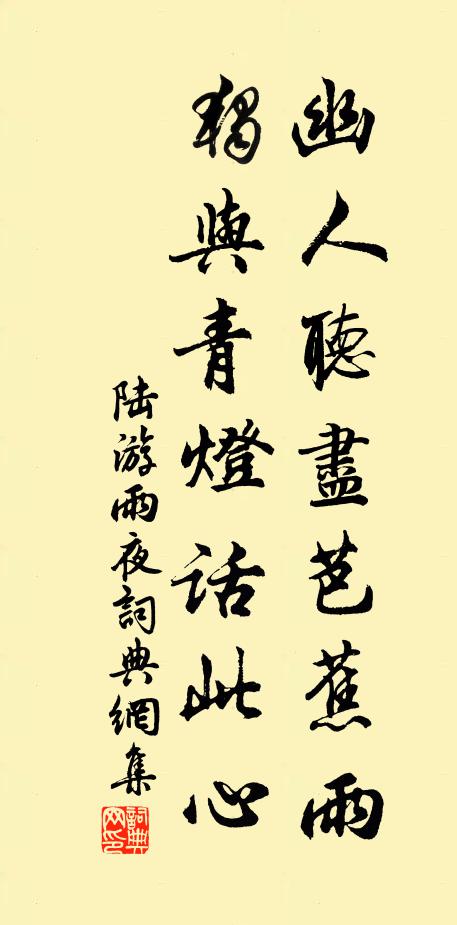 幽人聽盡芭蕉雨
獨與青燈話此心
陆游雨夜詞典網集
詞典網印